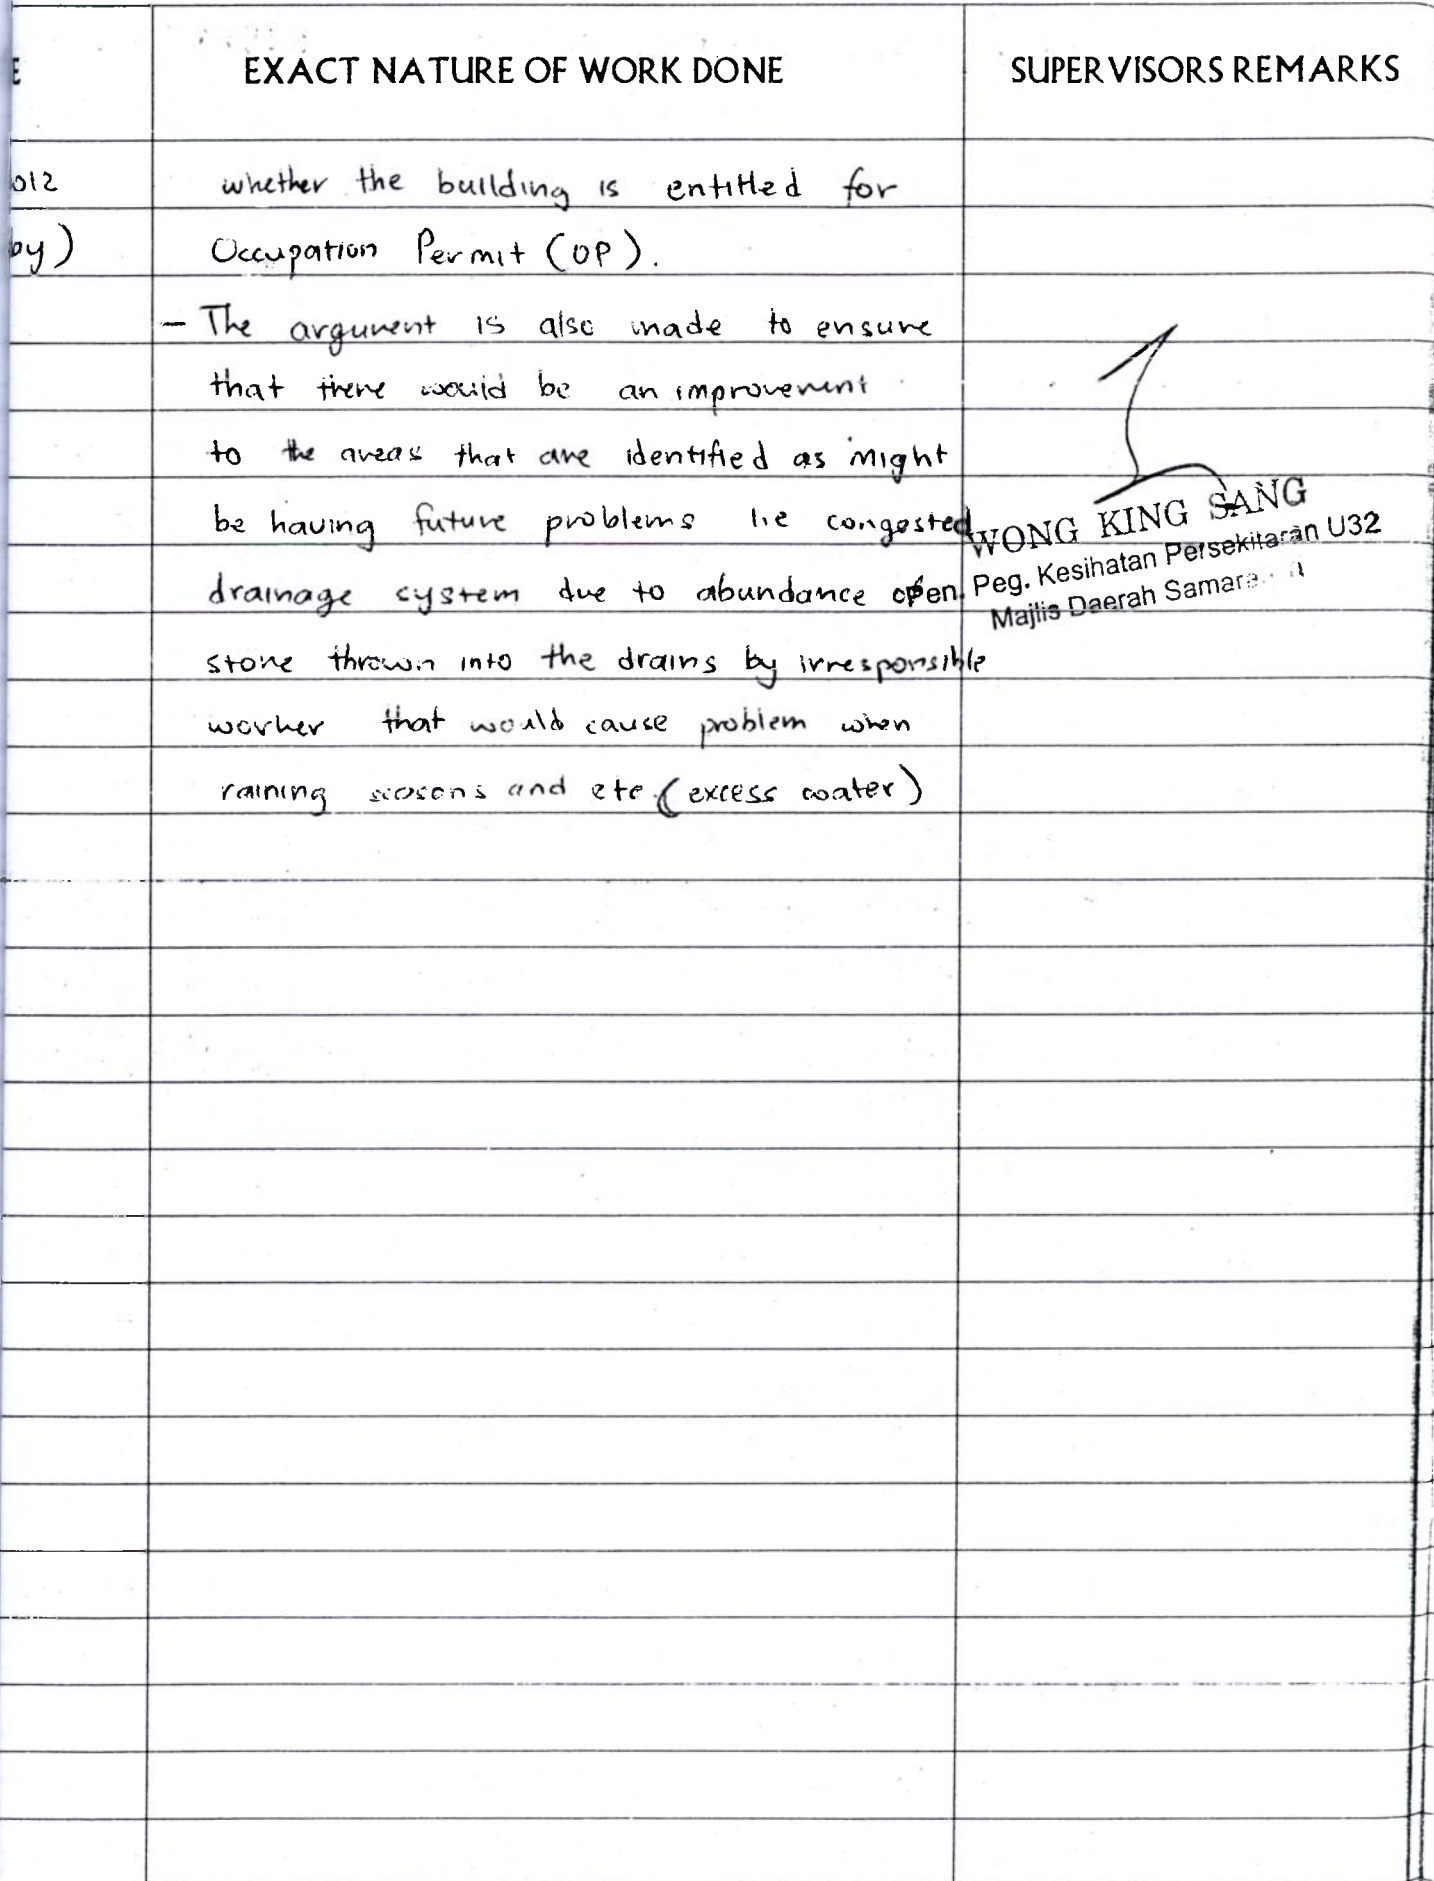 E EXACT NATURE OF WORK DONE SUPERVISORS REMARKS
012 whether the building is entitled for
by) Occupation Permit (OP).
- The argument is also made to ensure
that there would be an improvement
to the areas that are identified as might
be having future problems i.e congested
drainage system due to abundance of
stone thrown into the drains by irresponsible
worker that would cause problem when
raining seasons and etc. (excess water)
WONG KING SANG
Pen. Peg. Kesihatan Persekitaran U32
Majlis Daerah